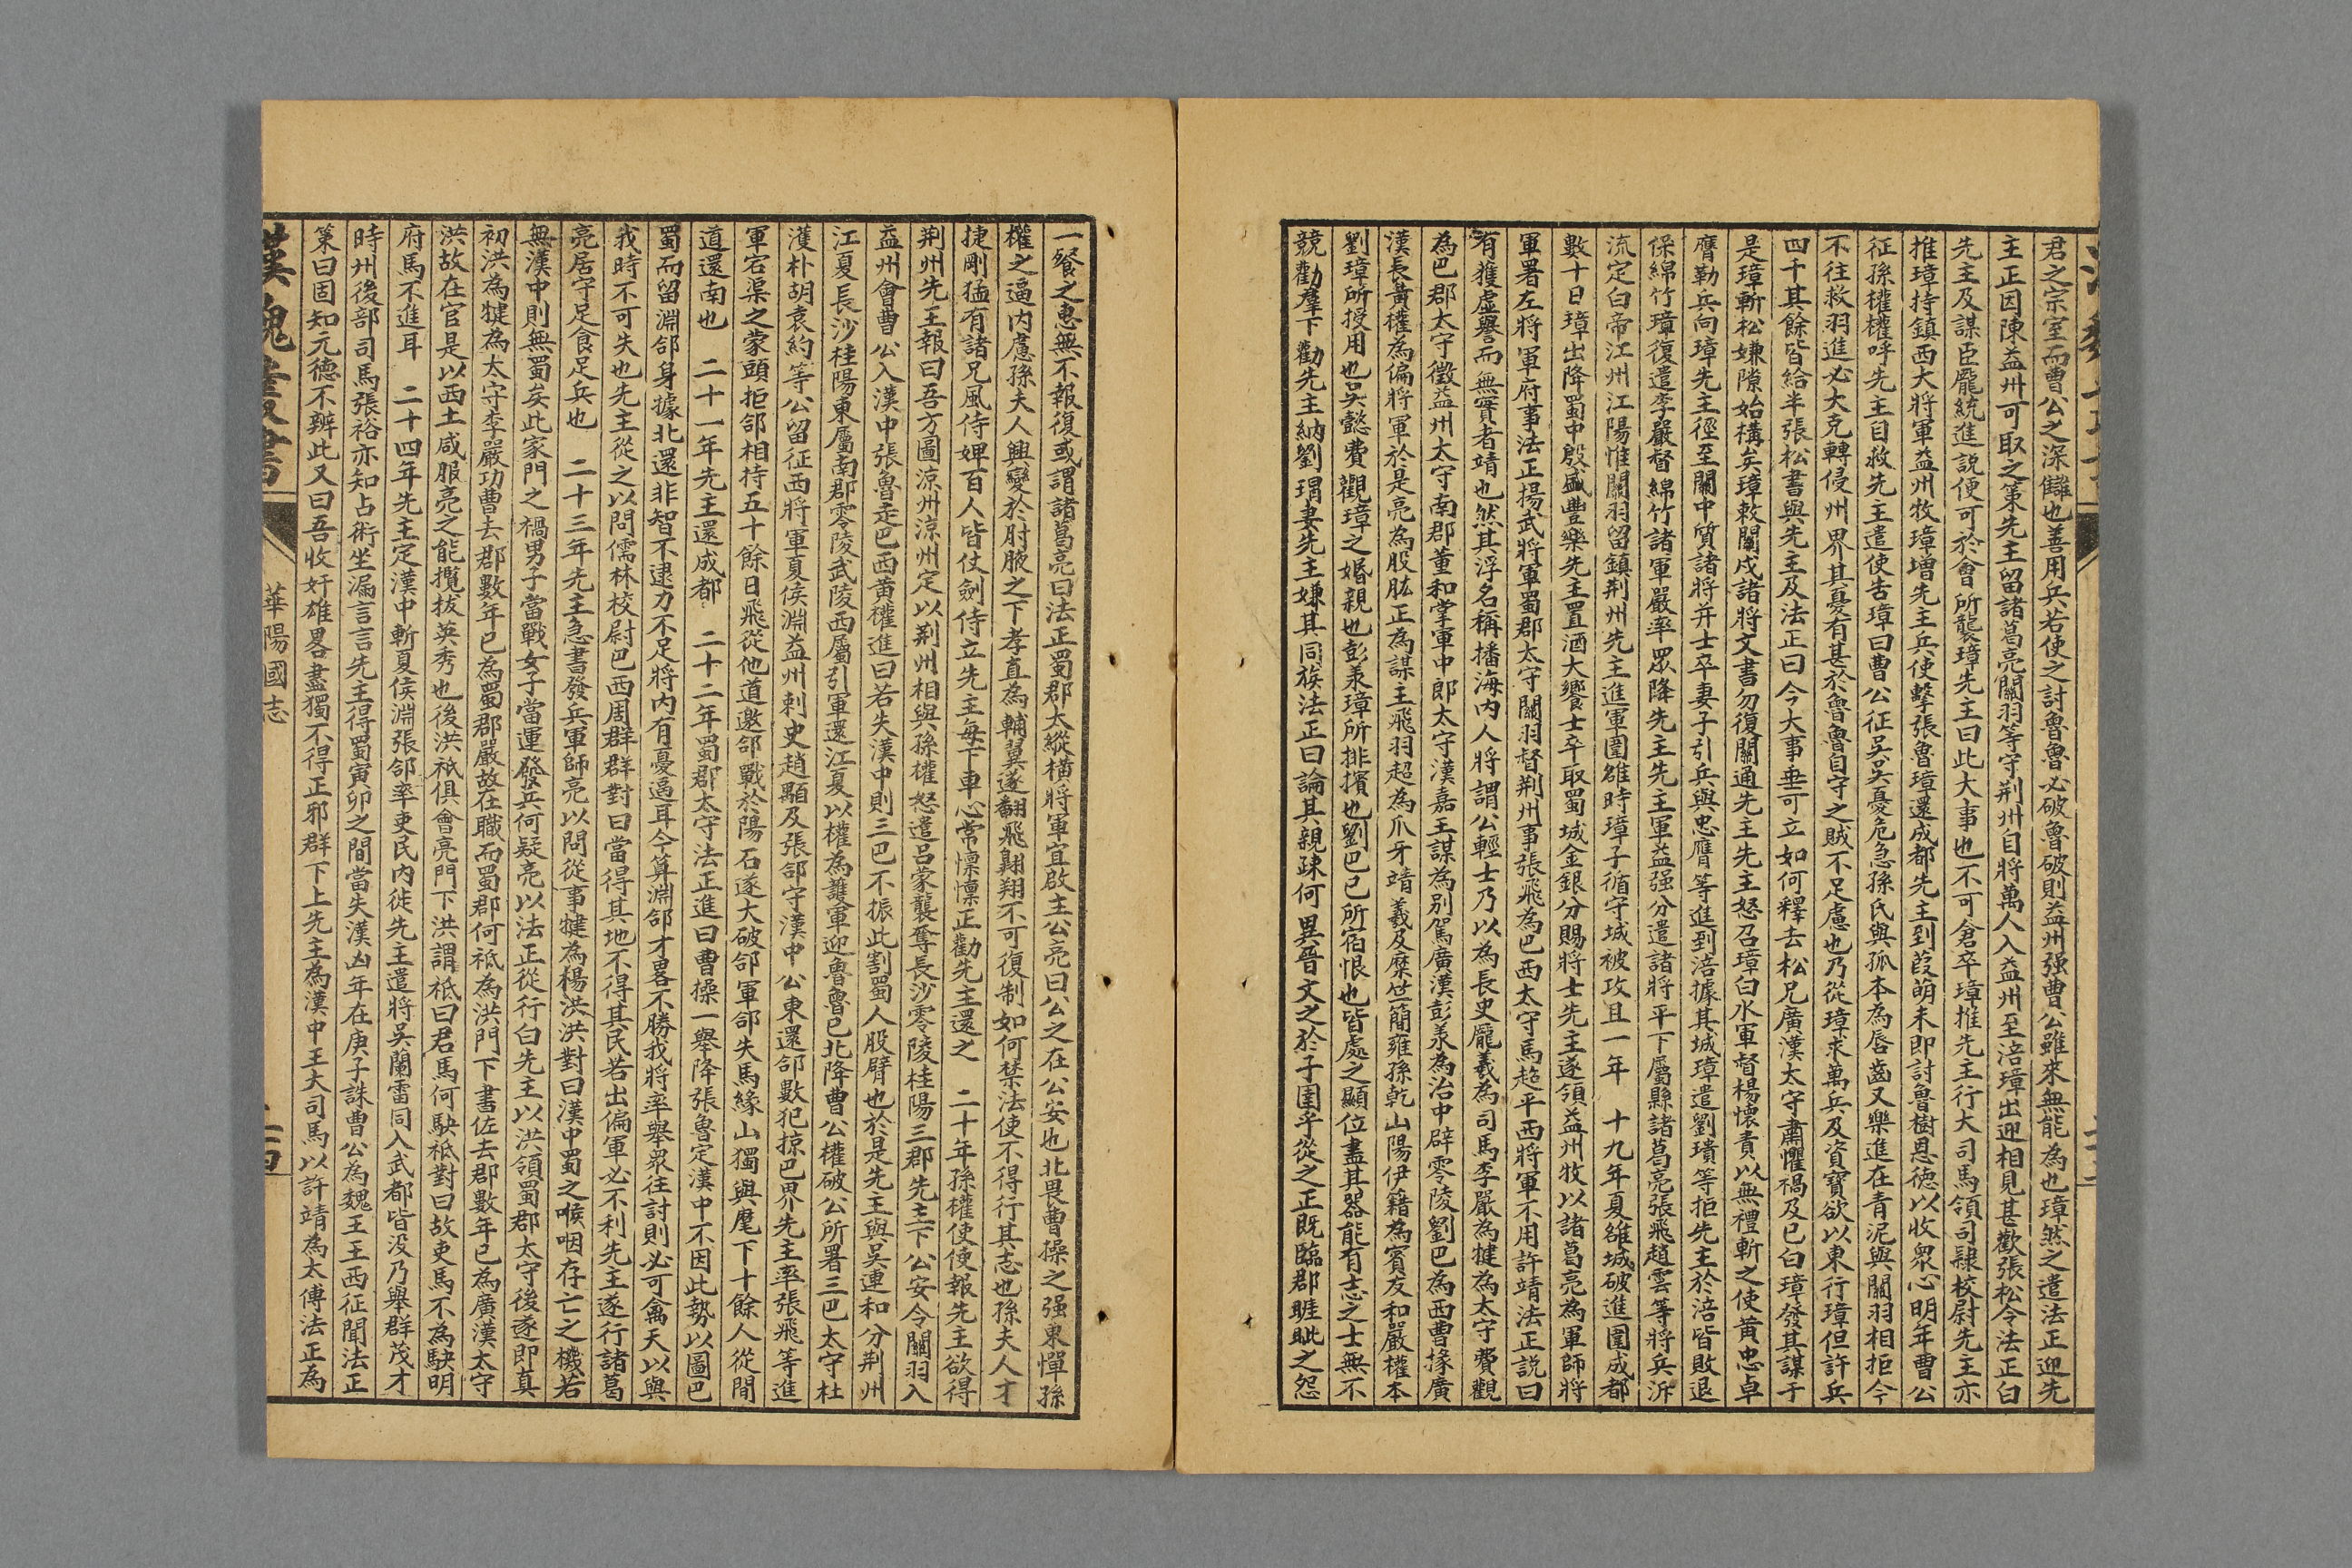 君之宗室而曹公之深讎也善用兵若使之討魯魯必破魯破則益州强曹公雖來無能為也璋然之遣法正迎先
主正因陳益州可取之策先主留諸葛亮關羽等守荆州自將萬人入益州至涪璋出迎相見甚歡張松令法正白
先主及謀臣龐統進説便可於會所襲璋先主曰此大事也不可倉卒璋推先主行大司馬領司隷校尉先主亦
推璋持鎮西大將軍益州牧璋增先主兵使擊張魯璋還成都先主到葭萌未即討魯樹恩德以收衆心明年曹公
征孫權權呼先主自救先主遣使告璋曰曹公征吳吳憂危急孫氏與孤本為唇齒又樂進在青泥與關羽相拒今
不往救羽進必大克轉侵州界其憂有甚於魯魯自守之賊不足慮也乃從璋求萬兵及資寳欲以東行璋但許兵
四千其餘皆給半張松書與先主及法正曰今大事垂可立如何釋去松兄廣漢太守肅懼禍及已白璋發其謀于
是璋斬松嫌隙始構矣璋敕關戍諸將文書勿復關通先主先主怒召璋白水軍督楊懷責以無禮斬之使黄忠卓
膺勒兵向璋先主徑至關中質諸將并士卒妻子引兵與忠膺等進到涪據其城璋遣劉璝等拒先主於涪皆敗退
保綿竹璋復遣李嚴督綿竹諸軍嚴率眾降先主先主軍益强分遣諸將平下屬縣諸葛亮張飛趙雲等將兵泝
流定白帝江州江陽惟關羽留鎮荆州先主進軍圍雒時璋子循守城被攻且一年　十九年夏雒城破進圍成都
數十日璋出降蜀中殷盛豐樂先主置酒大饗士卒取蜀城金銀分賜將士先主遂領益州牧以諸葛亮為軍師將
軍署左將軍府事法正揚武將軍蜀郡太守關羽督荆州事張飛為巴西太守馬超平西將軍不用許靖法正説曰
有獲虛譽而無實者靖也然其浮名稱播海内人將謂公輕士乃以為長史龐羲為司馬李嚴為犍為太守費觀
為巴郡太守徵益州太守南郡董和掌軍中郎太守漢嘉王謀為別駕廣漢彭羕為治中辟零陵劉巴為西曹掾廣
漢長黄權為偏將軍於是亮為股肱正為謀主飛羽超為爪牙靖羲及糜竺簡雍孫乾山陽伊籍為賓友和嚴權本
劉璋所授用也吳懿費觀璋之婚親也彭羕璋所排擯也劉巴已所宿恨也皆處之顯位盡其器能有志之士無不
競勸羣下勸先主納劉瑁妻先主嫌其同族法正曰論其親疎何異晉文之於子圉乎從之正既臨郡睚眦之怨
一飱之惠無不報復或謂諸葛亮曰法正蜀郡太縱横將軍宜啟主公亮曰公之在公安也北畏曹操之强東憚孫
權之逼内慮孫夫人興變於肘腋之下孝直為輔翼遂翻飛翺翔不可復制如何禁法使不得行其志也孫夫人才
捷剛猛有諸兄風侍婢百人皆仗劍侍立先主每下車心常懍懍正勸先主還之　二十年孫權使使報先主欲得
荆州先主報曰吾方圖涼州涼州定以荆州相與孫權怒遣吕蒙襲奪長沙零陵桂陽三郡先主下公安令關羽入
益州會曹公入漢中張魯走巴西黄權進曰若失漢中則三巴不振此割蜀人股臂也於是先主與吳連和分荆州
江夏長沙桂陽東屬南郡零陵武陵西屬引軍還江夏以權為護軍迎魯魯已北降曹公權破公所署三巴太守杜
濩朴胡袁約等公留征西將軍夏侯淵益州刺史趙顒及張郃守漢中公東還郃數犯掠巴界先主率張飛等進
軍宕渠之蒙頭拒郃相持五十餘日飛從他道邀郃戰於陽石遂大破郃軍郃失馬緣山獨與麾下十餘人從間
道還南也　二十一年先主還成都　二十二年蜀郡太守法正進曰曹操一舉降張魯定漢中不因此勢以圖巴
蜀而留淵郃身據北還非智不逮力不足將内有憂逼耳今算淵郃才畧不勝我將率舉衆往討則必可禽天以與
我時不可失也先主從之以問儒林校尉巴西周群群對曰當得其地不得其民若出偏軍必不利先主遂行諸葛
亮居守足食足兵也　二十三年先主急書發兵軍師亮以問從事犍為楊洪洪對曰漢中蜀之喉咽存亡之機若
無漢中則無蜀矣此家門之禍男子當戰女子當運發兵何疑亮以法正從行白先主以洪領蜀郡太守後遂即真
初洪為犍為太守李嚴功曹去郡數年已為蜀郡嚴故在職而蜀郡何祗為洪門下書佐去郡數年已為廣漢太守
洪故在官是以西土咸服亮之能攬拔英秀也後洪祇俱會亮門下洪謂祗曰君馬何駃祗對曰故吏馬不為駃明
府馬不進耳　二十四年先主定漢中斬夏侯淵張郃率吏民内徙先主遣將吳蘭雷同入武都皆没乃舉群茂才
時州後部司馬張裕亦知占術坐漏言言先主得蜀寅卯之間當失漢凶年在庚子誅曹公為魏王王西征聞法正
策曰固知元德不辨此又曰吾收奸雄畧盡獨不得正邪群下上先主為漢中王大司馬以許靖為太傅法正為
漢魏叢書　華陽國志